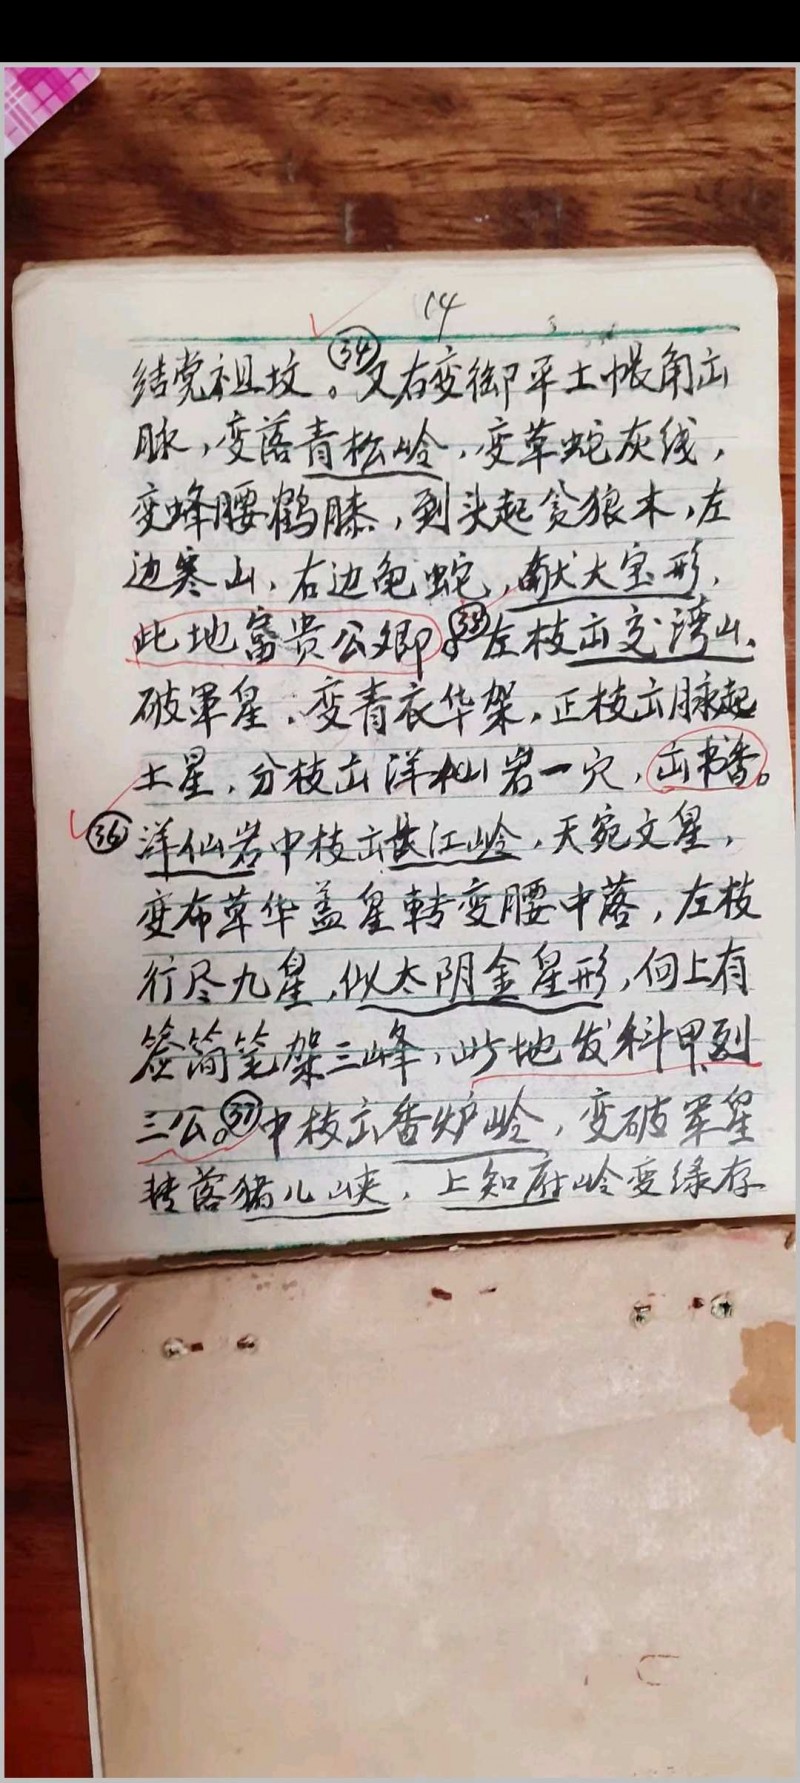 14
结党祖坟。㉞又右变御平土帐角出
脉，变落青松岭，变草蛇灰线，
变蜂腰鹤膝，到头起贪狼木，左
边寒山，右边龟蛇，献大宝形，
此地富贵公卿。㉟左枝出交湾山、
破军星，变青衣华架，正枝出脉起
土星，分枝出洋仙岩一穴，出书香。
㊱洋仙岩中枝出长江岭，天宛文星，
变布草华盖星转变腰中落，左枝
行尽九星，似太阴金星形，向上有
签简笔架三峰，此地发科甲列
三公。㊲中枝出香炉岭，变破军星
转落猪儿峡，上知府岭变绿存